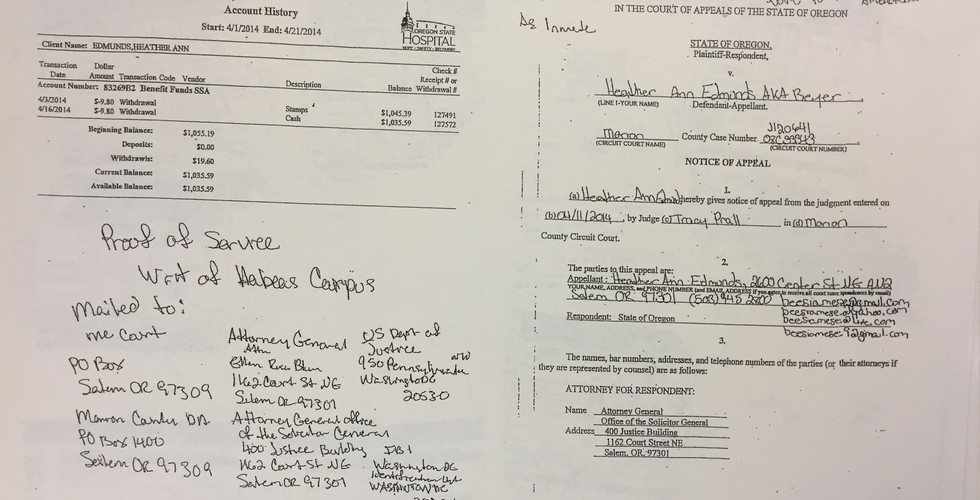 Account History
Start: 4/1/2014 End: 4/21/2014
OREGON STATE
HOSPITAL
Client Name: EDMUNDS,HEATHER ANN
Transaction Date Dollar Amount Transaction Code Vendor Description Balance Check # Receipt # or Withdrawal #
Account Number: 83269B2 Benefit Funds SSA
4/3/2014 $-9.80 Withdrawal Stamps $1,045.39 127491
4/16/2014 $-9.80 Withdrawal Cash $1,035.59 127572
Beginning Balance: $1,055.19
Deposits: $0.00
Withdrawls: $19.60
Current Balance: $1,035.59
Available Balance: $1,035.59
Proof of Service
Writ of Habeas Campus
Mailed to:
me Court
PO Box
Salem OR 97309
Marion DA
PO Box 1400
Salem OR 97309
Attorney General
Attn
Ellen Rosenblum
1162 Court St NE
Salem OR 97301
Attorney General office
of the Solicitor General
400 Justice Building
1162 Court St NE
Salem OR 97301
US Dept of
Justice
950 Pennsylvania NW
Washington DC
20530
Washington DC
WASHINGTON DC
IN THE COURT OF APPEALS OF THE STATE OF OREGON
Inmate
STATE OF OREGON,
Plaintiff-Respondent,
v.
Heather Ann Edmonds AKA Beyer
(LINE 1-YOUR NAME) Defendant-Appellant.
Marion County Case Number J120641
(CIRCUIT COURT NAME) (CIRCUIT COURT NUMBER)
NOTICE OF APPEAL
1.
(a) Heather Ann hereby gives notice of appeal from the judgment entered on
(b) 04/11/2014, by Judge (c) Tracy Prall in (d) Marion
County Circuit Court.
2.
The parties to this appeal are:
Appellant: Heather Ann Edmonds, 2600 Center St NE
YOUR NAME, ADDRESS, and PHONE NUMBER (and EMAIL ADDRESS if you agree to receive all court correspondence by email)
Salem OR 97301 (503) 945 2800 beesiamese@gmail.com
beesiamese@yahoo.com
beesiamese@live.com
beesiamese.9@gmail.com
Respondent: State of Oregon
3.
The names, bar numbers, addresses, and telephone numbers of the parties (or their attorneys if
they are represented by counsel) are as follows:
ATTORNEY FOR RESPONDENT:
Name Attorney General
Office of the Solicitor General
Address 400 Justice Building
1162 Court Street NE
Salem, OR 97301